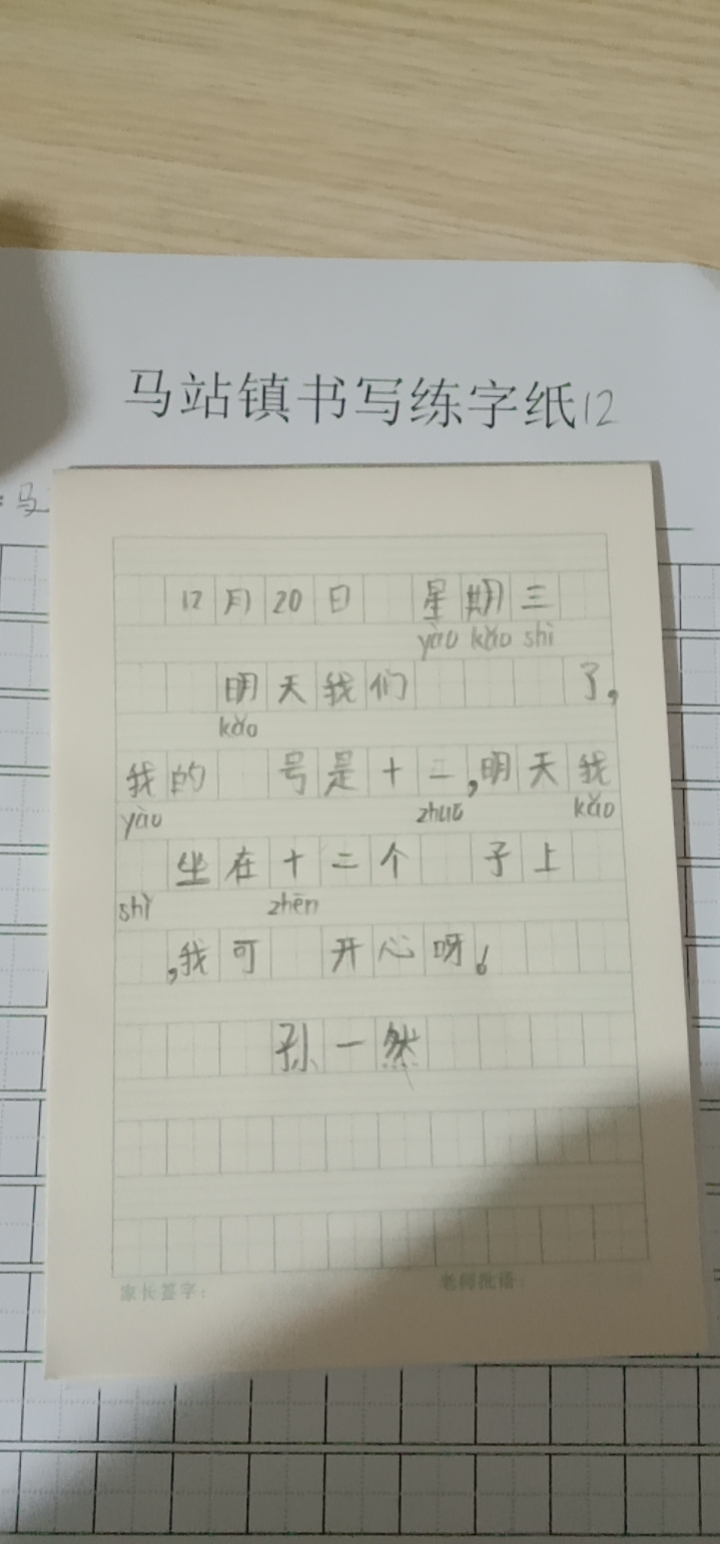 马站镇书写练字纸12
马
12月20日 星期三
yào kǎo shì
明天我们 了,
kǎo
我的 号是十二,明天我
yào zhuō kǎo
坐在十二个 子上
shì zhēn
,我可 开心呀!
孙一然
家长签字: 老师批语: